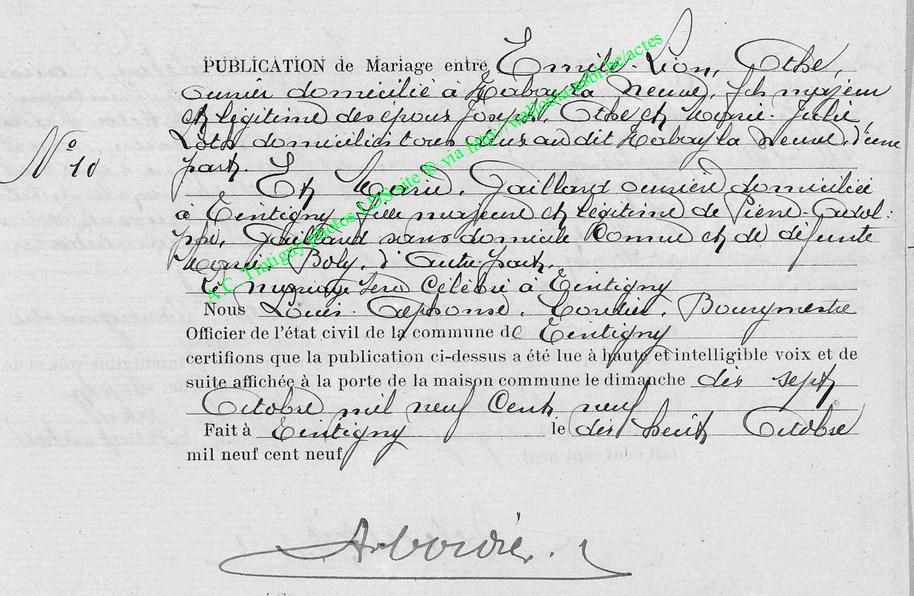 PUBLICATION de Mariage entre Emile-Léon, Othe,
ouvrier domicilié à Habay la Neuve, fils majeur
et légitime des époux Joseph, Othe et Marie-Julie
domiciliés tous deux au dit Habay la Neuve, d'une
part.
N° 10
Et Marie, Gaillard ouvrière domiciliée
à Tintigny fille majeure et légitime de Pierre-Adol-
phe, Gaillard sans domicile connu et de défunte
Marie, Boly, d'autre part.
Le mariage sera célébré à Tintigny
Nous Louis-Alphonse, Bourgmestre
Officier de l'état civil de la commune de Tintigny
certifions que la publication ci-dessus a été lue à haute et intelligible voix et de
suite affichée à la porte de la maison commune le dimanche dix sept
Octobre mil neuf cent neuf
Fait à Tintigny le dix huit Octobre
mil neuf cent neuf
A.C. Tintigny photos